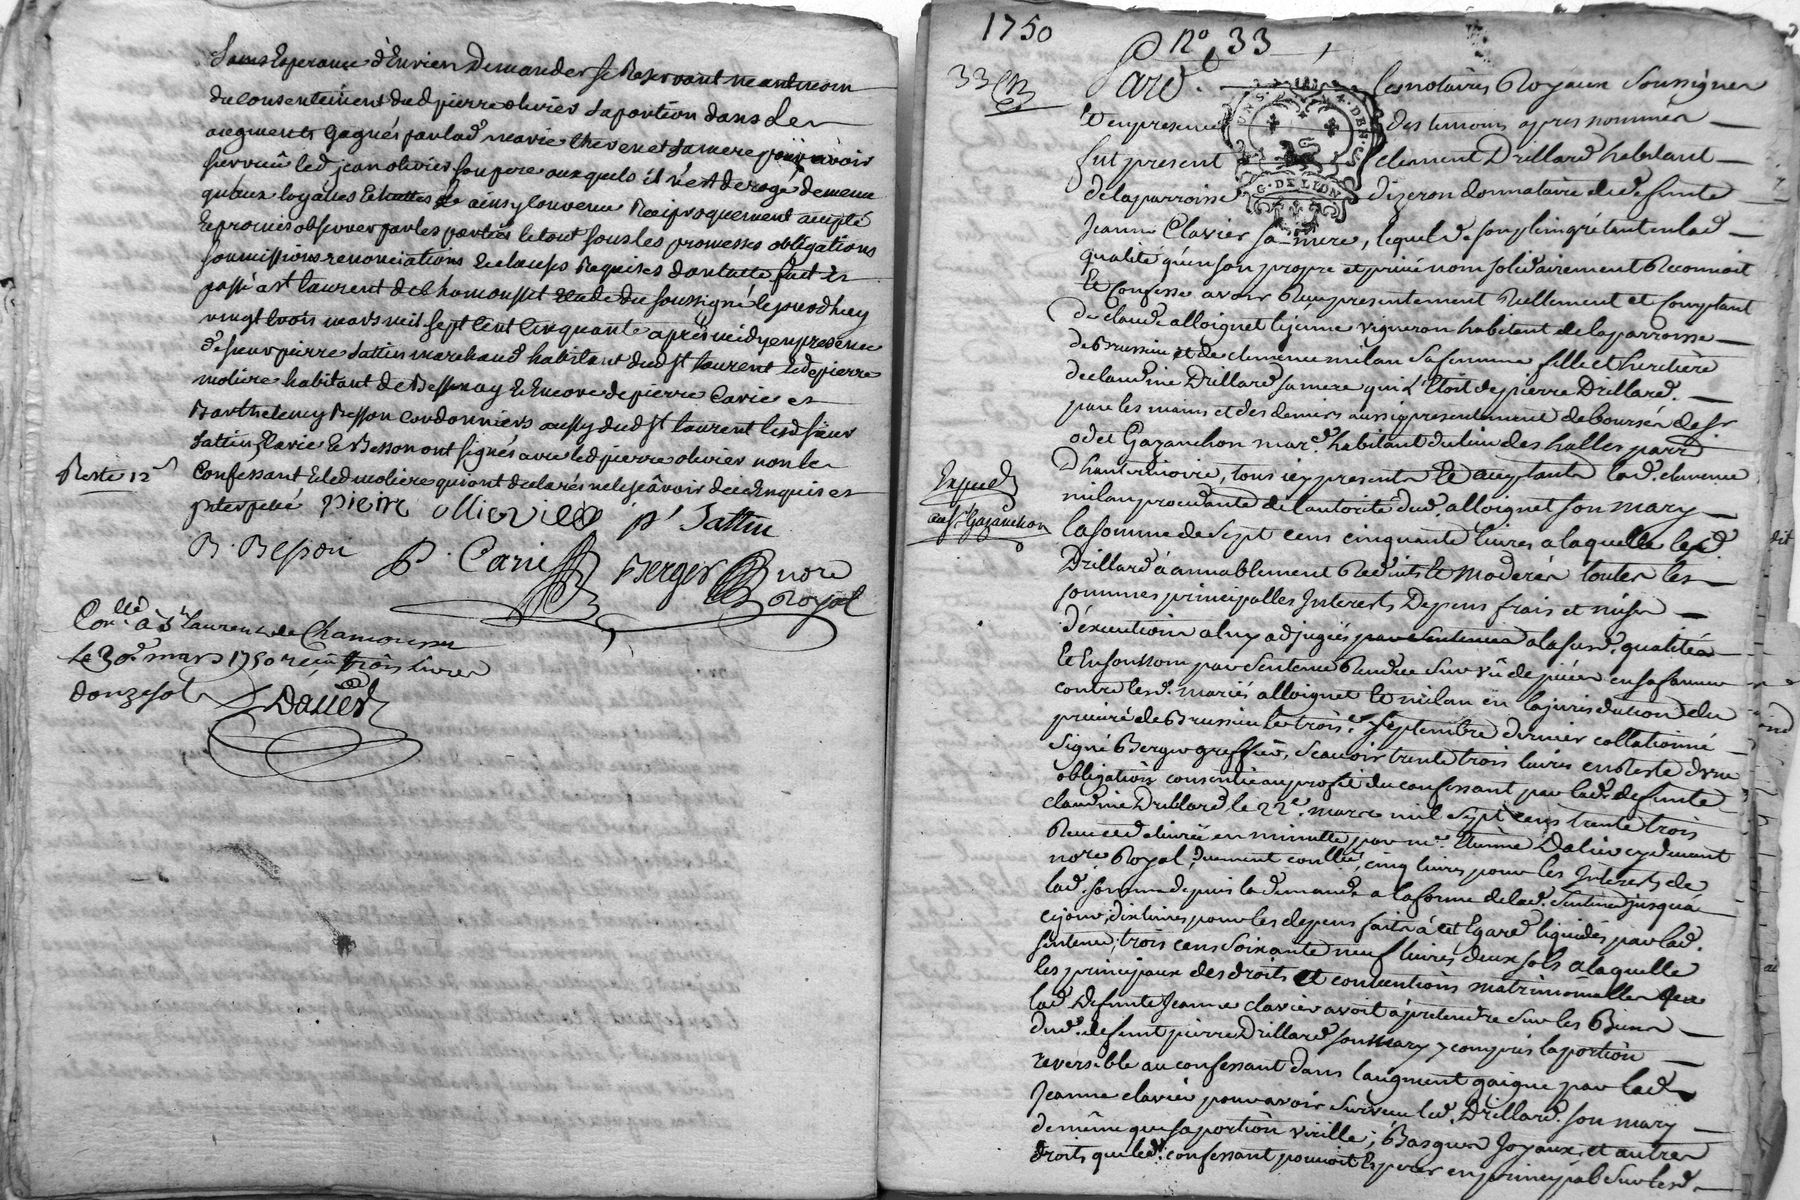 sans Esperance d'En rien Demander se Reservant neantmoin
du consentement dud pierre olivier sa portion dans les
augments gagnés par lad marie thevenet sa mere pour avoir
survecu led jean olivier son pere auxquels il n'est derogé de meme
qu'aux bagues Et
ainsy convenu Reciproquement accepté
Et promis observer par les parties le tout sous les promesses obligations
soumissions renonciations Et clauses Requises dont acte fait et
passé a st laurent de chamousset Etude du soussigné le jourd'huy
vingt trois mars mil sept cent cinquante après midy en presence
de sieur pierre sattin marchand habitant dud st laurent Et de pierre
molière habitant de Bessenay Et Encore de pierre Carie et
Barthelemy Besson cordonniers aussy dud st laurent lesd sieur
sattin, Carie Et Besson ont signés avec led pierre olivier non le
Reste 12 s
Confessant Et led moliere qui ont declarés ne le sçavoir de ce Enquis et
interpellé pierre ollier p. sattin
B. Besson P. Carie Berger nore
Royal
Con.llé à St Laurent de Chamousset
le 30e mars 1750 reçu trois livres
donze sols
Daller
1750
No 33
33
Pard. les notaires Royaux soussignés
Et en presence des temoins apres nommés
fut present clement Drillard habitant
G. DE LION
de la parroisse dizeron donnataire de defunte
Jeanne Clavier sa mere, lequel de son plein gré tant en lad
qualité qu'en son propre et privé nom solidairement Reconnoit
Et Confesse avoir Reçu presentement Réellement et Comptant
de claude alloignet le jeune vigneron habitant de la parroisse
de Brussieu et de clemence milan sa femme fille et heritière
de claudine Drillard sa mere qui L'étoit de pierre Drillard.
par les mains et des deniers aussy presentement deboursés de sr
odet Gazanchon mard. habitant du lieu des halles parr.
D'hauterivoire, tous icy presents Et acceptants lad. clemence
aud sr Gazanchon
milan procedante de l'autorité dud. alloignet son mary
la somme de sept cens cinquante livres a laquelle led.
Drillard a amiablement Reduits Et moderés toutes les
sommes principalles Interests Depens frais et mises
d'éxecution a luy adjugées par sentences a la susd. qualité
contre lesd. mariés alloignet Et milan en la jurisdiction du
prieuré de Brussieu le trois.e septembre dernier collationné
signé Berger greffier, scavoir trente trois livres en Reste d'une
obligation consentie au profit du confessant par lad. defunte
claudine Drillard le 22e. mars mil sept cens trente trois
Reçue et delivrée en minutte par me. Etienne Dalier cydevant
nore Royal, duement conllée, cinq livres pour les Interests de
lad. somme depuis la demande a la forme de lad. sentence jusqu'à
ce jour, dix livres pour les depens faits à cet Egard liquidés par lad.
sentence; trois cens soixante neuf livres deux sols a laquelle
les principaux des droits et conventions matrimonialles que
lad. Defunte Jeanne clavier avoit à pretendre sur les Biens
dud. defunt pierre Drillard son mary y compris la portion
reversible au confessant dans l'augment gaigné par lad
Jeanne clavier pour avoir survecu led. Drillard son mary
de même que sa portion virille; Bagues Joyaux et autres
droits que led. confessant pouvoit Esperer en principal sur lesd.